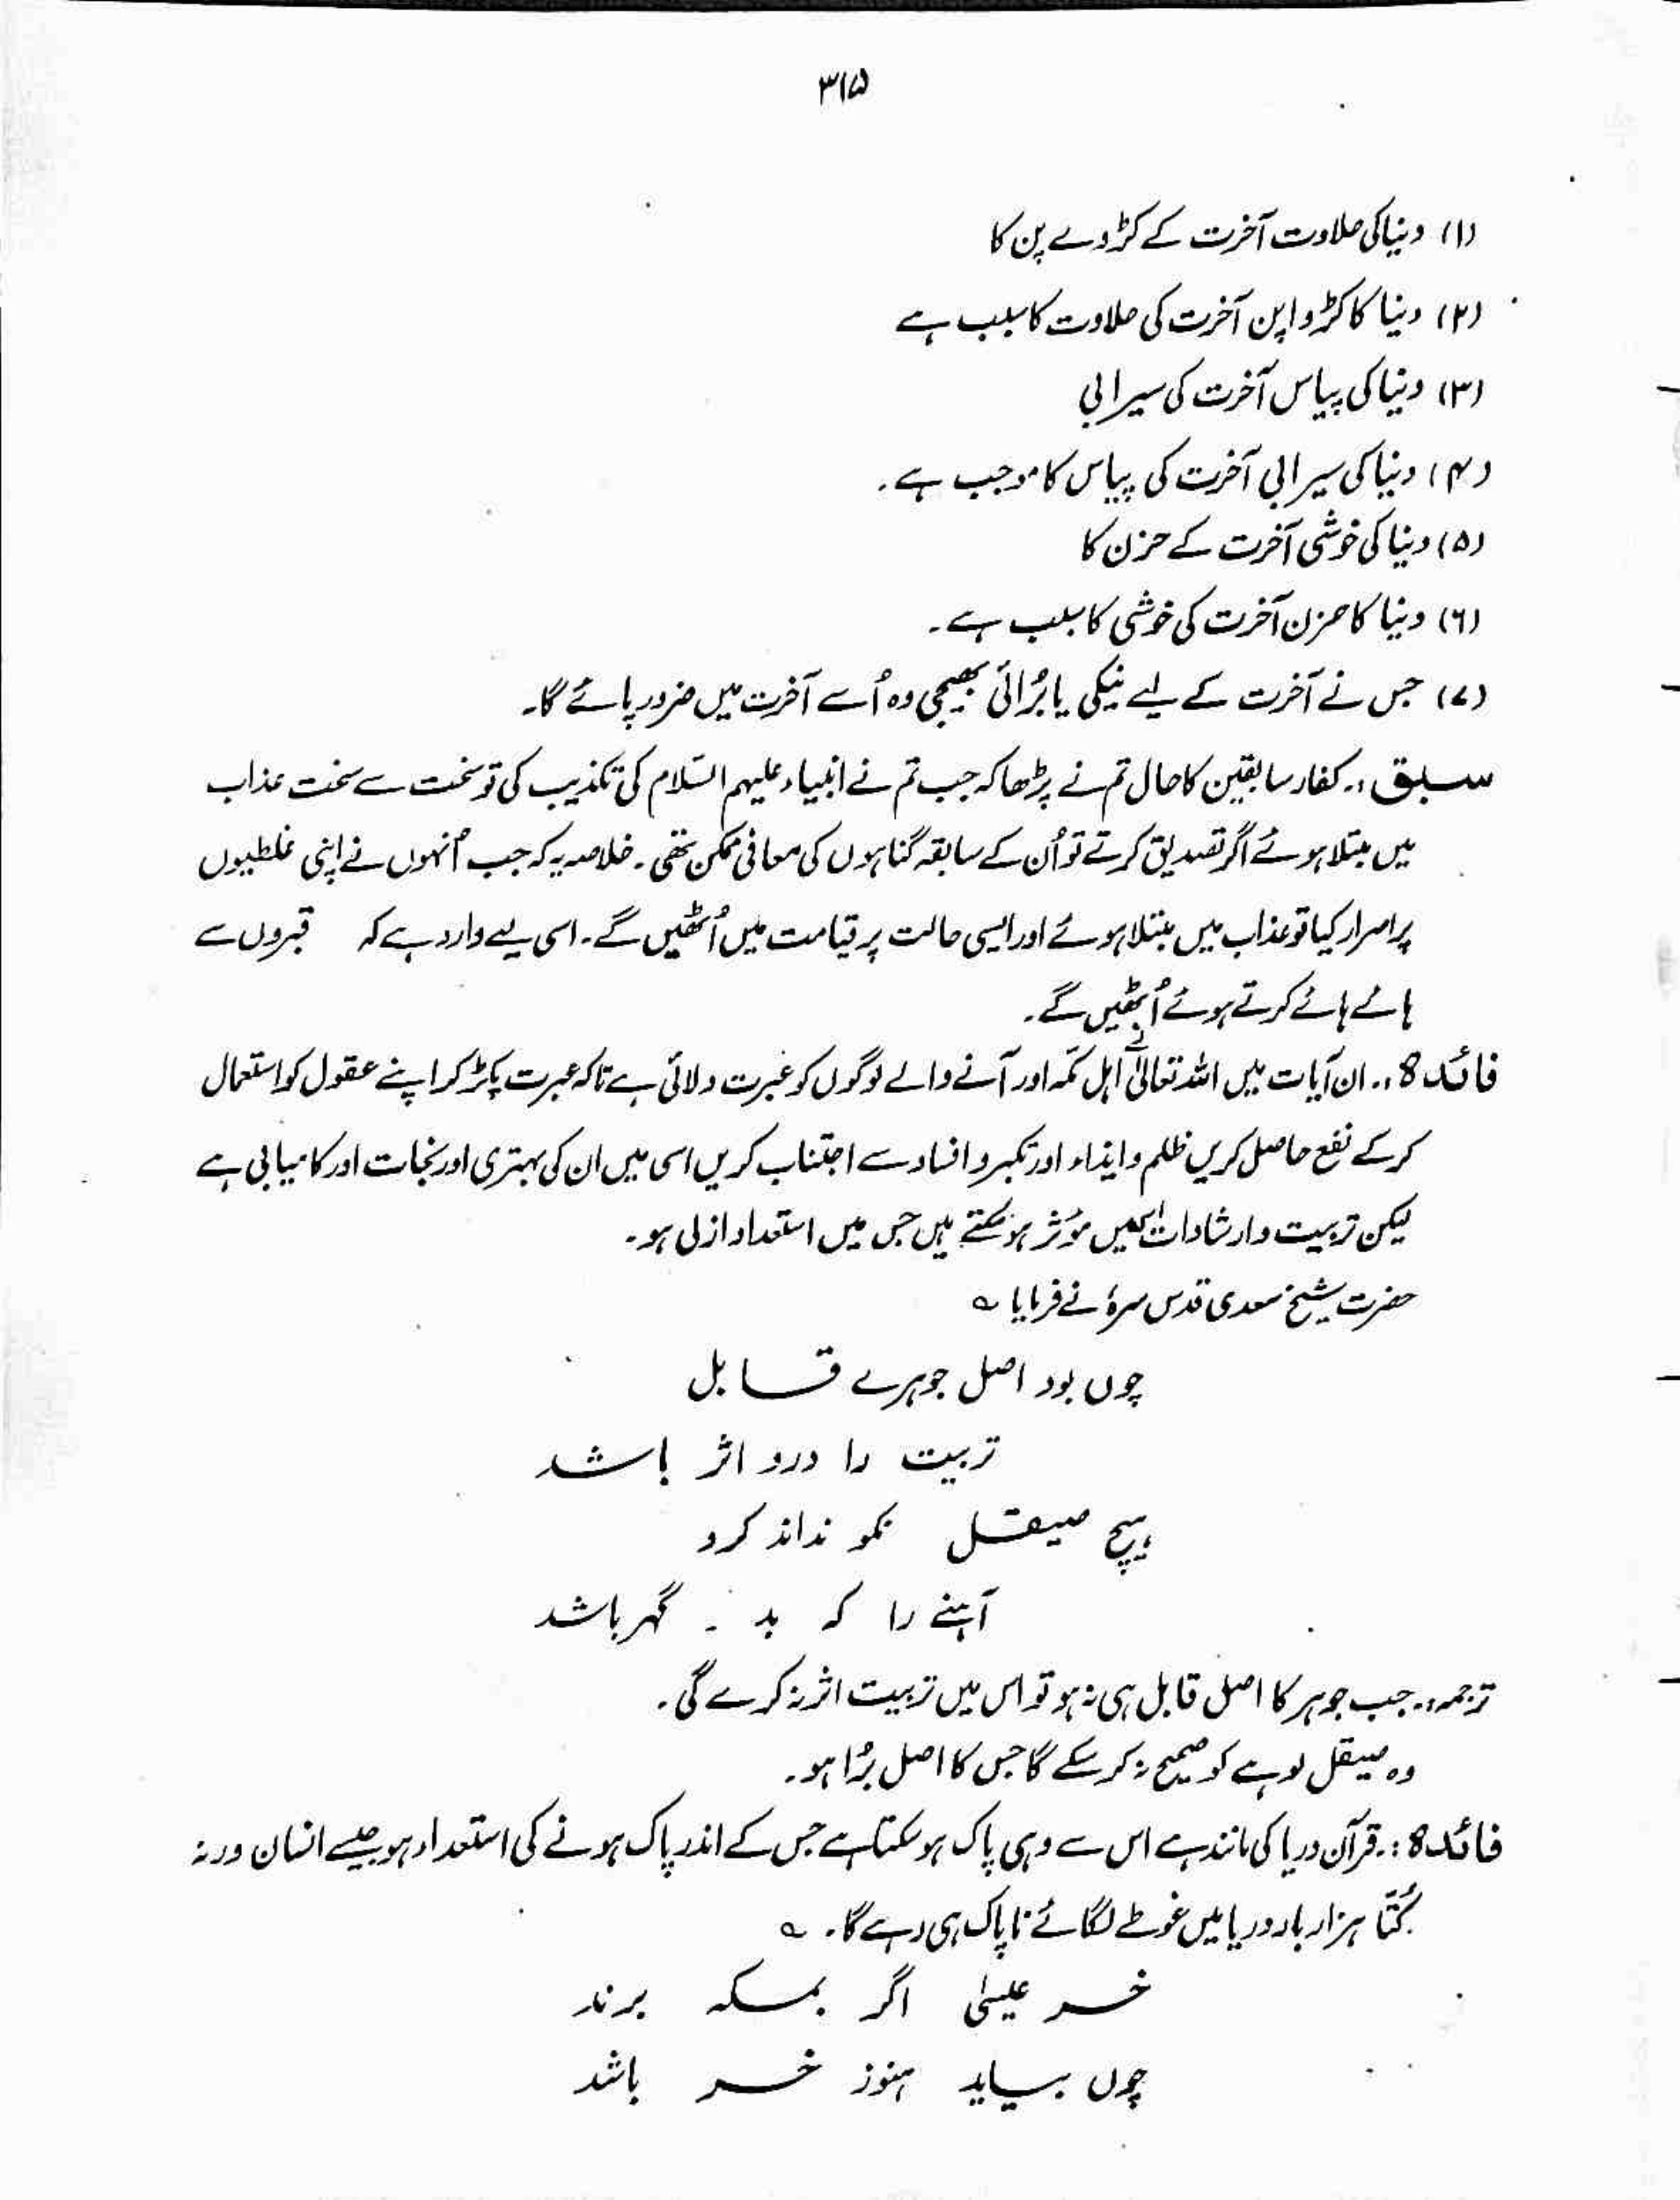 ۳۱۵
(۱) دنیا کی حلاوت آخرت کے کڑوے پن کا
(۲) دنیا کا کڑواپن آخرت کی حلاوت کا سبب ہے
(۳) دنیا کی پیاس آخرت کی سیرابی
(۴) دنیا کی سیرابی آخرت کی پیاس کا موجب ہے۔
(۵) دنیا کی خوشی آخرت کے حزن کا
(۶) دنیا کا حزن آخرت کی خوشی کا سبب ہے۔
(۷) جس نے آخرت کے لیے نیکی یا بُرائی بھیجی وہ اُسے آخرت میں ضرور پائے گا۔
سبق :۔ کفار سابقین کا حال تم نے پڑھا کہ جب تم نے انبیاء علیہم السّلام کی تکذیب کی تو سخت سے سخت عذاب
میں مبتلا ہوئے اگر تصدیق کرتے تو اُن کے سابقہ گناہوں کی معافی ممکن تھی ۔ خلاصہ یہ کہ جب اُنہوں نے اپنی غلطیوں
پر اصرار کیا تو عذاب میں مبتلا ہوئے اور ایسی حالت پر قیامت میں اُٹھیں گے۔ اسی لیے وارد ہے کہ قبروں سے
ہائے ہائے کرتے ہوئے اُٹھیں گے۔
فائدہ :۔ ان آیات میں اللہ تعالیٰ نے اہل مکّہ اور آنے والے لوگوں کو عبرت دلائی ہے تاکہ عبرت پکڑ کر اپنے عقول کو استعمال
کر کے نفع حاصل کریں ظلم و ایذاء اور تکبر و افساد سے اجتناب کریں اسی میں ان کی بہتری اور نجات اور کامیابی ہے
لیکن تربیت و ارشادات اُنھیں مؤثر ہو سکتے ہیں جس میں استعداد ازلی ہو۔
حضرت شیخ سعدی قدس سرہٗ نے فرمایا ؎
چوں بود اصل جوہرے قابل
تربیت را درو اثر باشد
ہیچ صیقل نکو نداند کرد
آہنے را کہ بد ۔ گہر باشد
ترجمہ:۔ جب جوہر کا اصل قابل ہی نہ ہو تو اس میں تربیت اثر نہ کرے گی۔
وہ صیقل لوہے کو صحیح نہ کر سکے گا جس کا اصل بُرا ہو۔
فائدہ :۔ قرآن دریا کی مانند ہے اس سے وہی پاک ہو سکتا ہے جس کے اندر پاک ہونے کی استعداد ہو جیسے انسان ورنہ
کُتّا ہزار بار دریا میں غوطے لگائے ناپاک ہی رہے گا۔ ؎
خر عیسیٰ اگر بمکہ برند
چوں بیاید ہنوز خر باشد